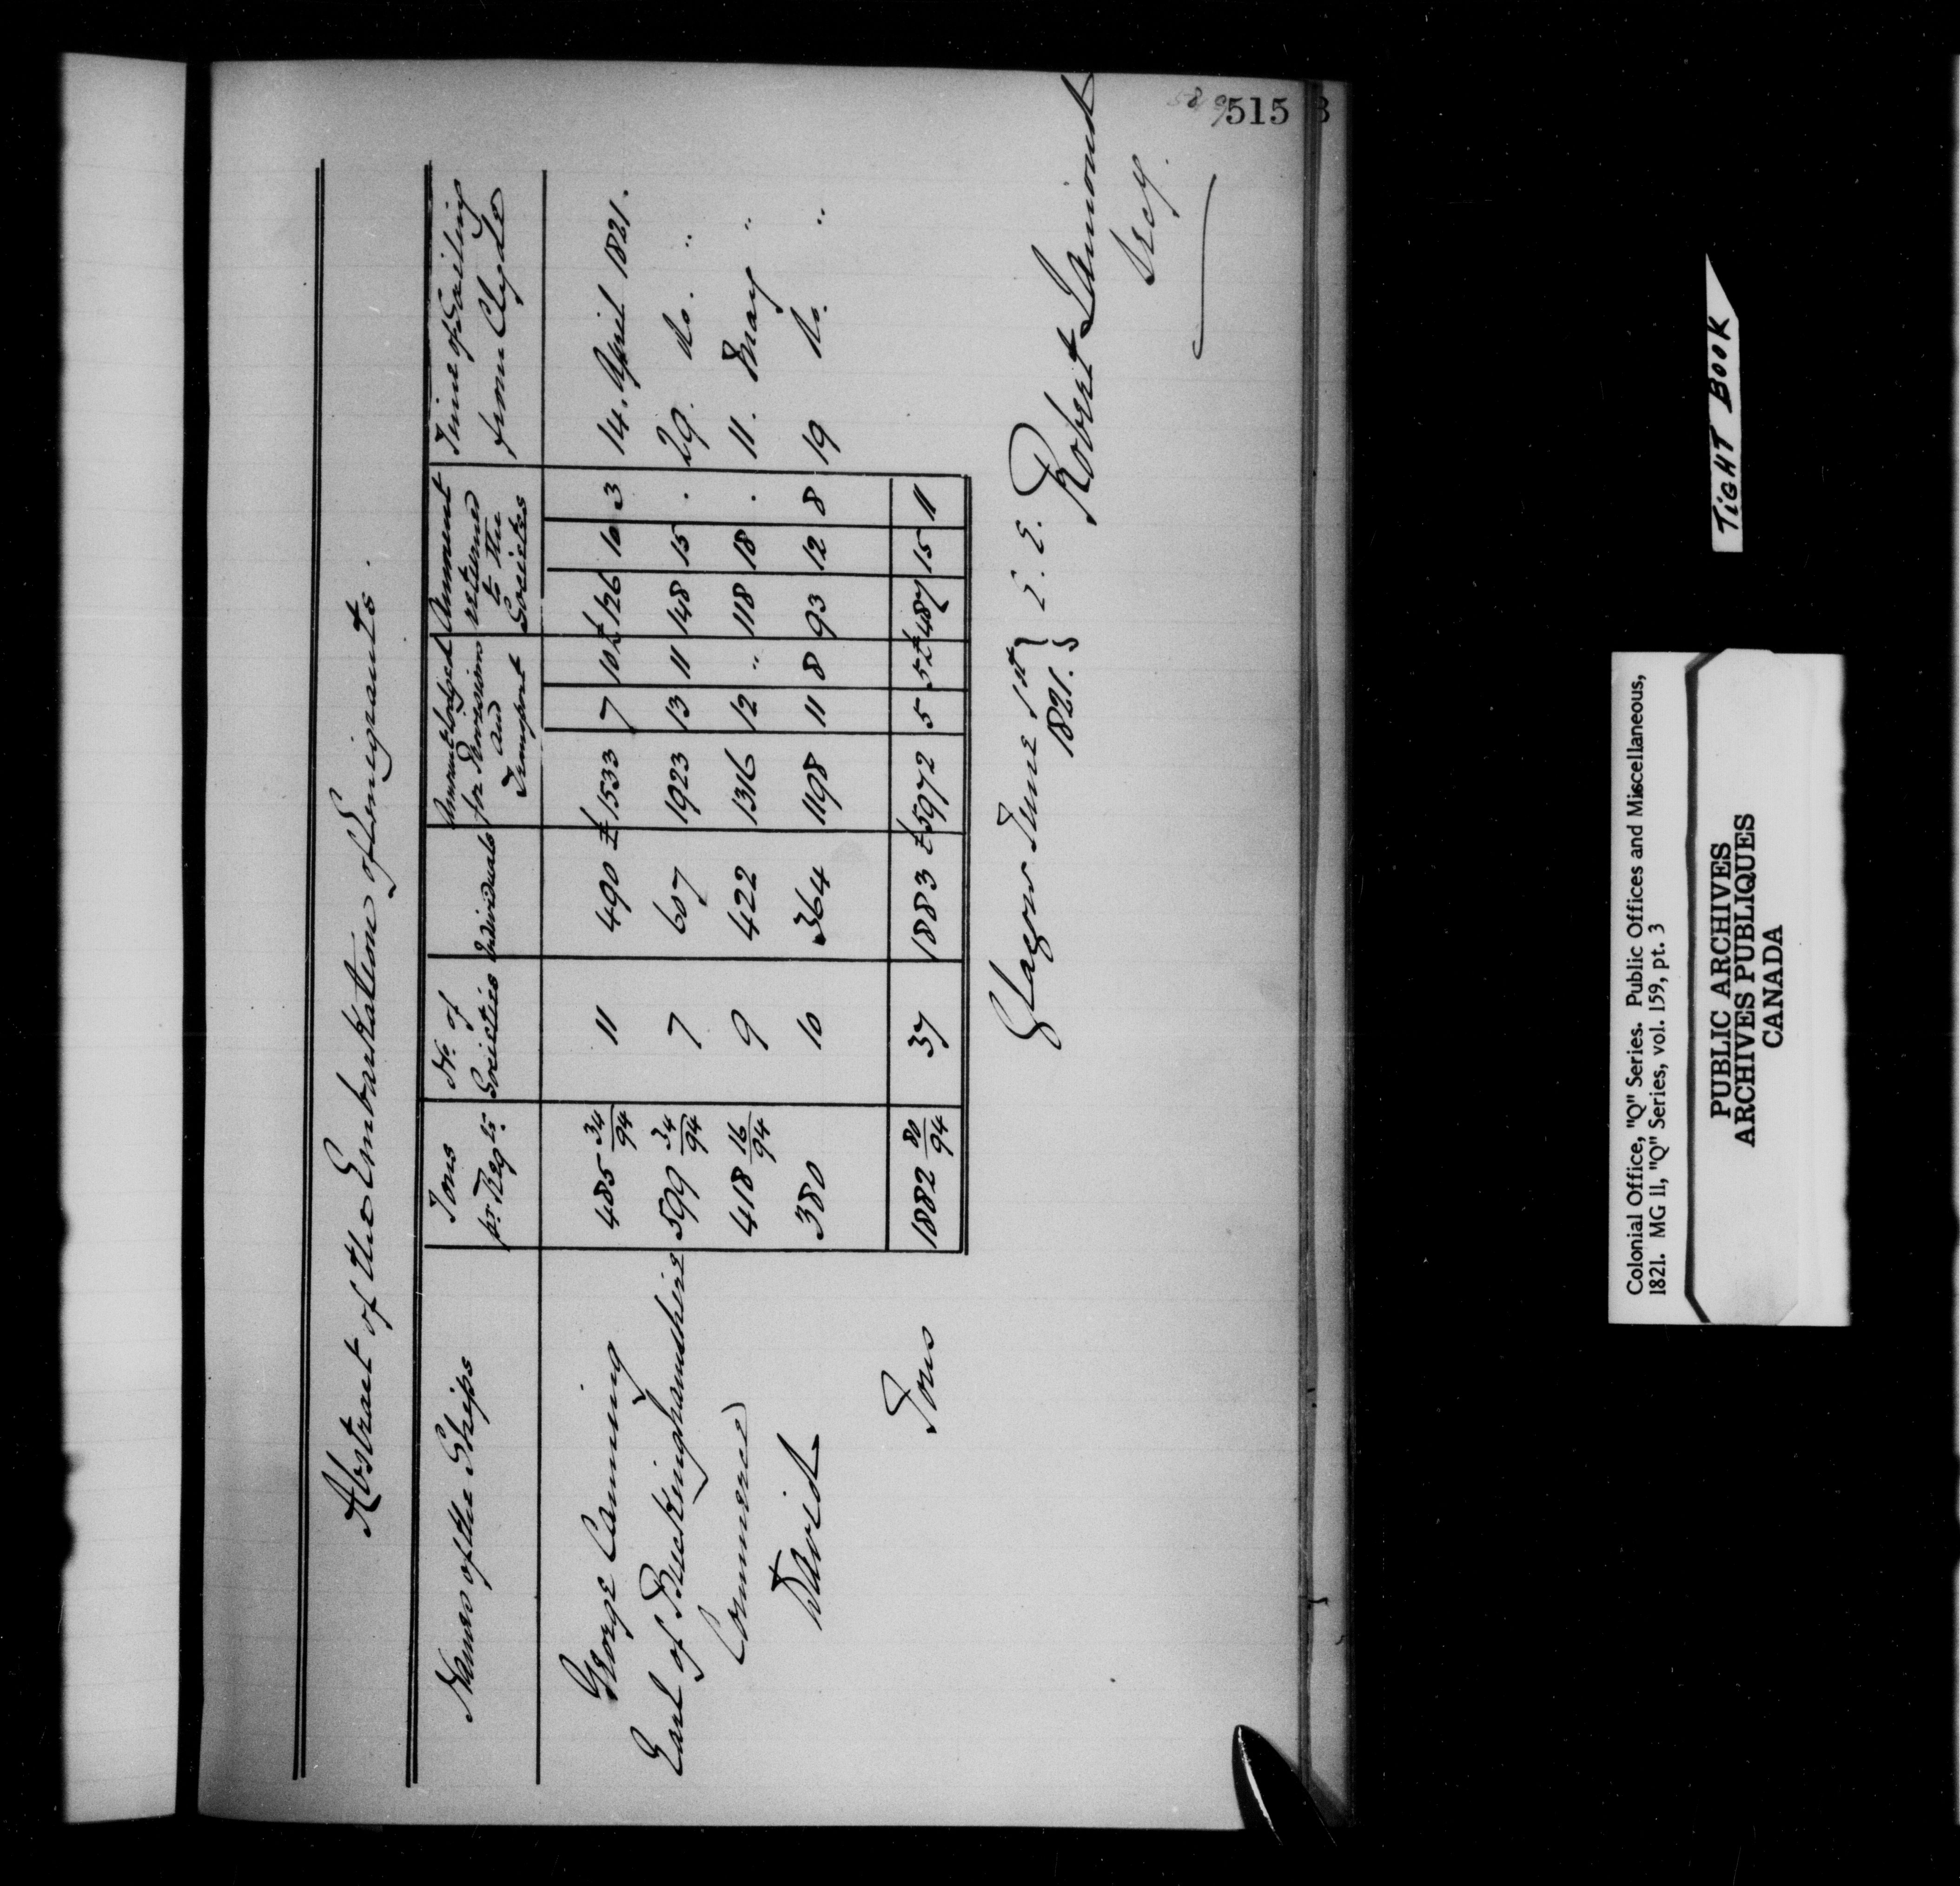 515
Abstract of the Embarkation of Emigrants.
Names of the Ships | Tons pr. Regtr. | No. of Societies | Individuals | Amount lodged for Provisions and Transport | Amount returned to the Societies | Time of Sailing from Clyde
George Canning | 485 34/94 | 11 | 490 | £1533 | 7 | 10 | £126 | 10 | 3 | 14. April 1821.
Earl of Buckinghamshire | 599 34/94 | 7 | 607 | 1923 | 13 | 11 | 148 | 15 | . | 29. do. "
Commerce | 418 16/94 | 9 | 422 | 1316 | 12 | " | 118 | 18 | . | 11. May "
David | 380 | 10 | 364 | 1198 | 11 | 8 | 93 | 12 | 8 | 19 do. "
Tons | 1882 80/94 | 37 | 1883 | £5972 | 5 | 5 | £487 | 15 | 11
Glasgow June 1st } E. E.
1821. }
Robert Lamond
Secy.
TIGHT BOOK
Colonial Office, "Q" Series. Public Offices and Miscellaneous,
1821. MG 11, "Q" Series, vol. 159, pt. 3
PUBLIC ARCHIVES
ARCHIVES PUBLIQUES
CANADA